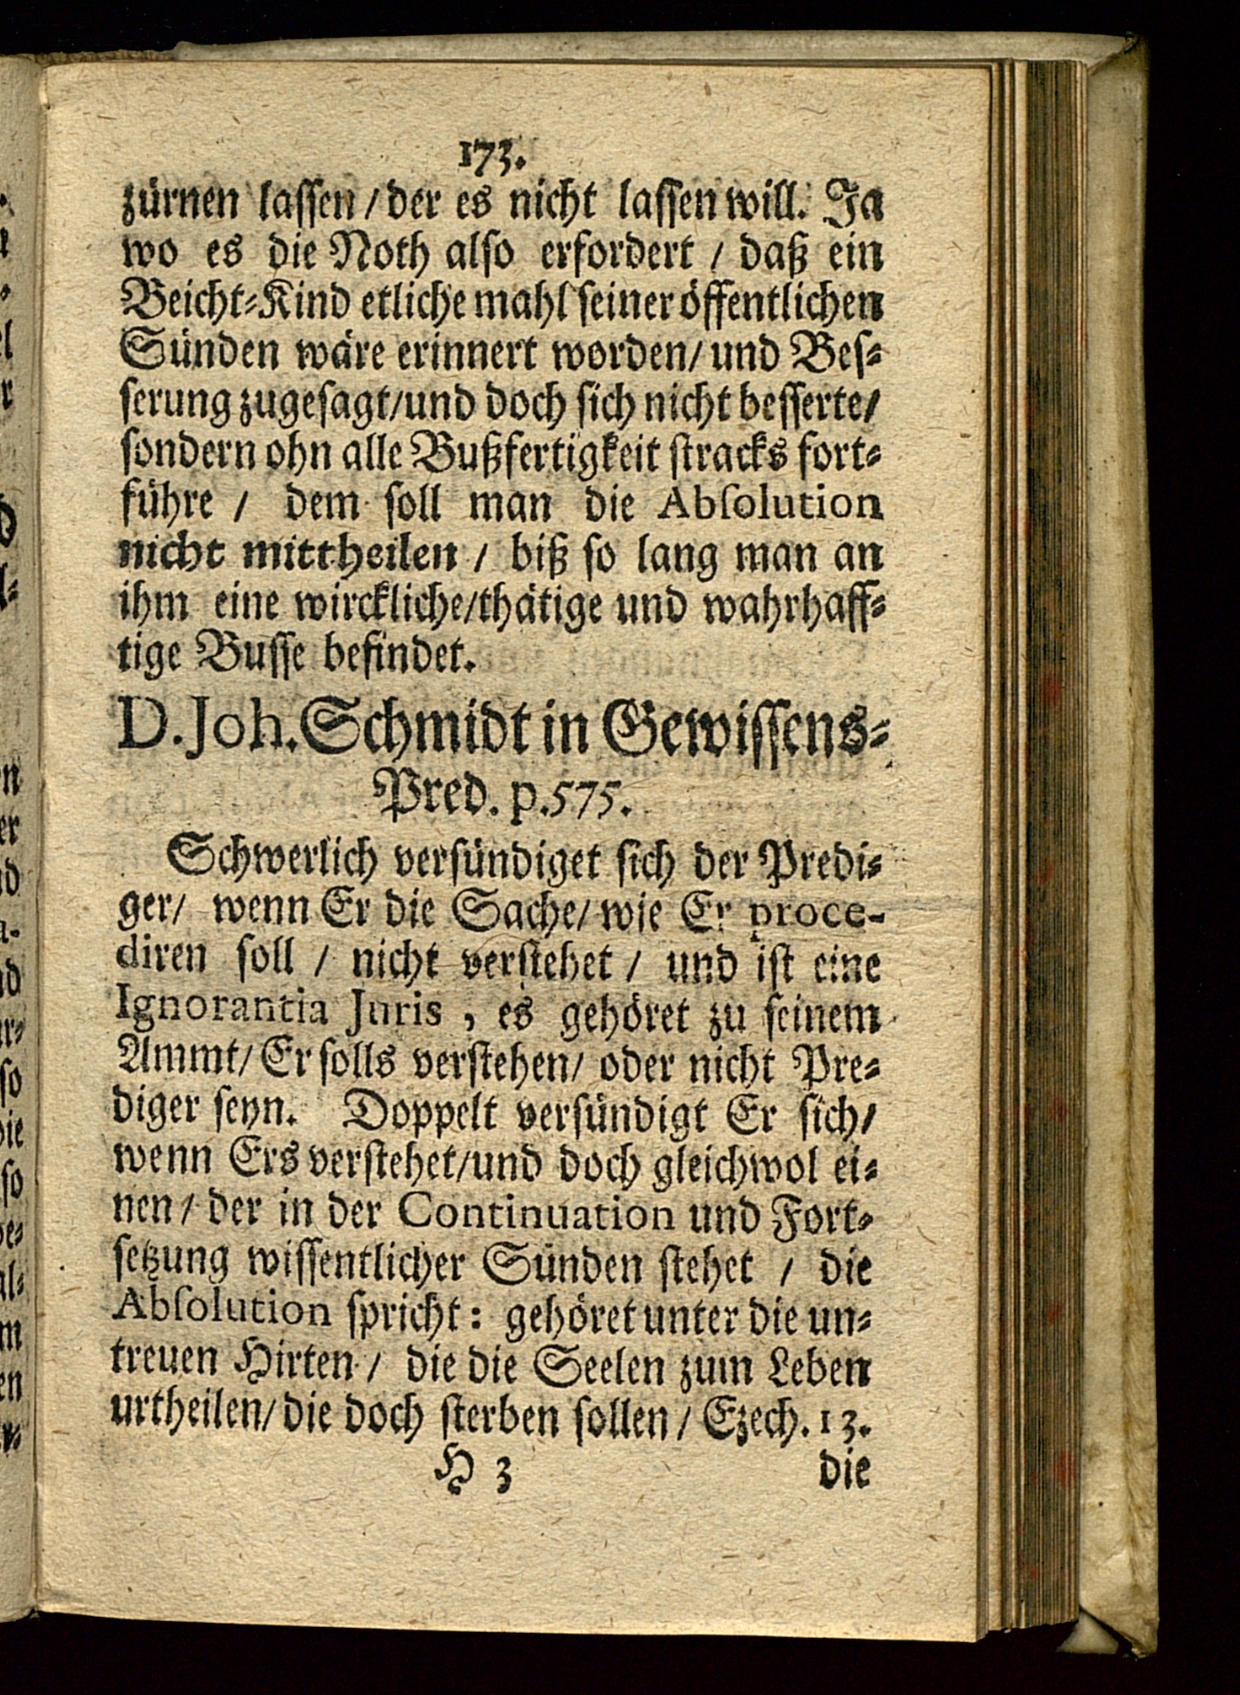 173.
zürnen lassen / der es nicht lassen will. Ja
wo es die Noth also erfordert / daß ein
Beicht-Kind etliche mahl seiner öffentlichen
Sünden wäre erinnert worden / und Bes-
serung zugesagt / und doch sich nicht besserte /
sondern ohn alle Bußfertigkeit stracks fort-
führe / dem soll man die Absolution
nicht mittheilen / biß so lang man an
ihm eine wirckliche / thätige und wahrhaff-
tige Busse befindet.
D. Joh. Schmidt in Gewissens-
Pred. p. 575.
Schwerlich versündiget sich der Predi-
ger / wenn Er die Sache / wie Er proce-
diren soll / nicht verstehet / und ist eine
Ignorantia Juris , es gehöret zu seinem
Ammt / Er solls verstehen / oder nicht Pre-
diger seyn. Doppelt versündigt Er sich /
wenn Ers verstehet / und doch gleichwol ei-
nen / der in der Continuation und Fort-
setzung wissentlicher Sünden stehet / die
Absolution spricht : gehöret unter die un-
treuen Hirten / die die Seelen zum Leben
urtheilen / die doch sterben sollen / Ezech. 13.
H 3 die